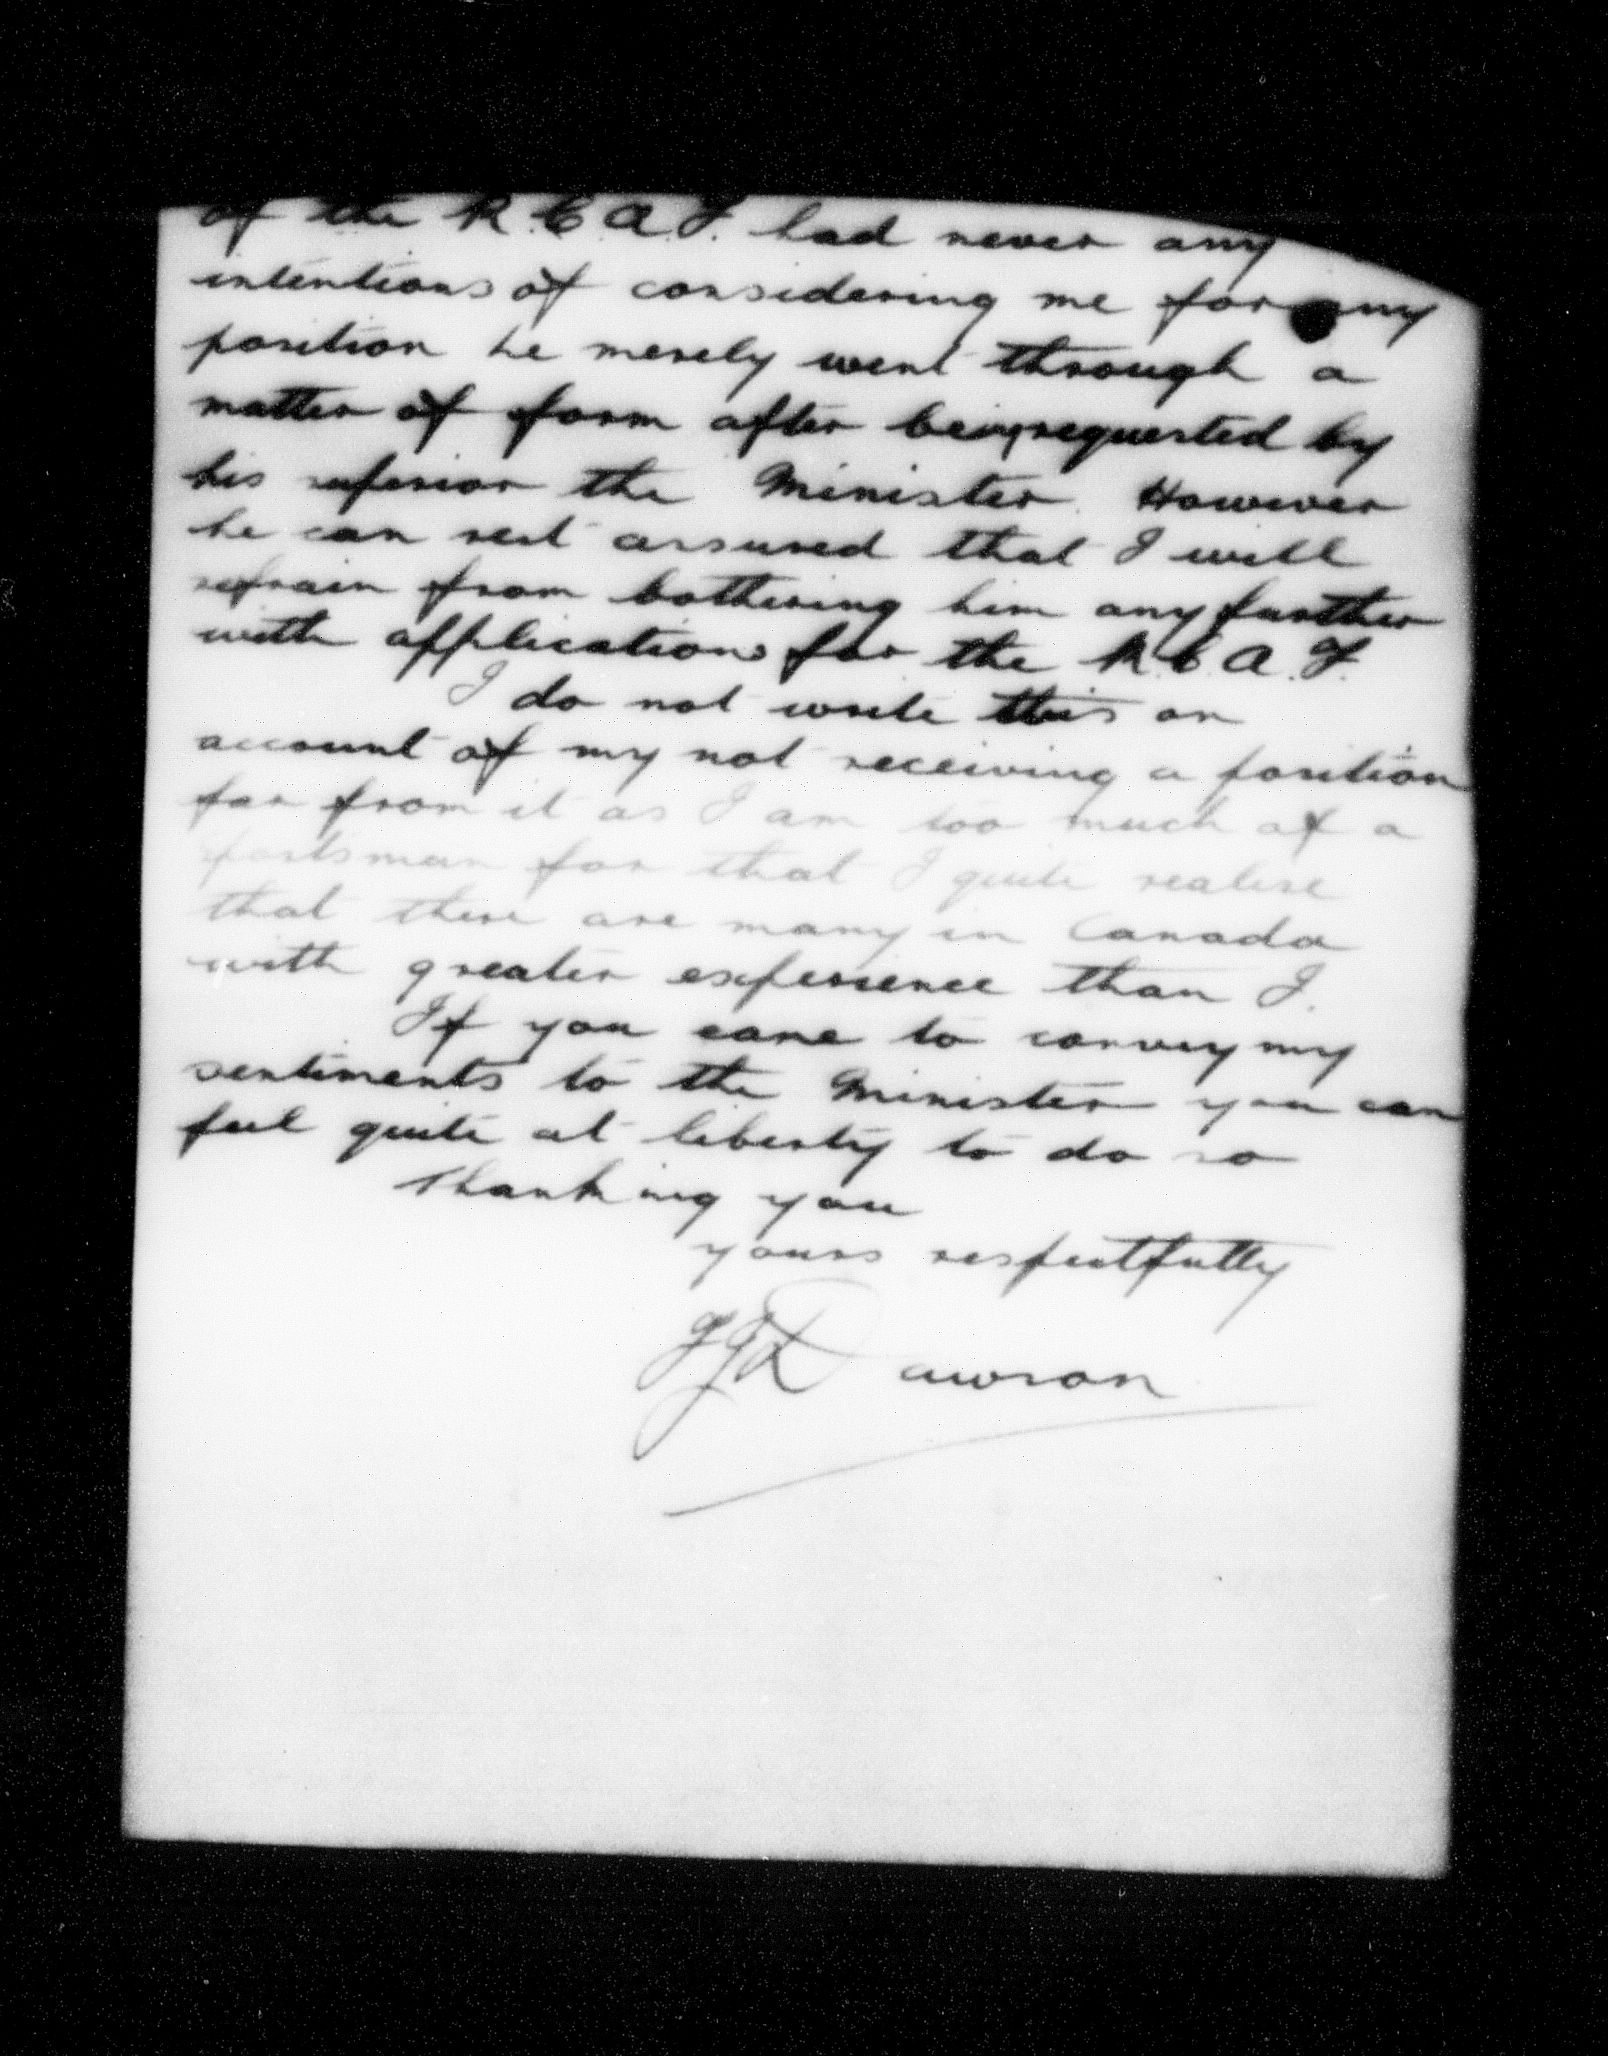 of the R.C.A.F. had never any
intentions of considering me for any
position he merely went through a
matter of form after being requested by
his superior the Minister. However
he can rest assured that I will
refrain from bothering him any further
with applications for the R.C.A.F.
I do not write this on
account of my not receiving a position
far from it as I am too much of a
sportsman for that I quite realise
that there are many in Canada
with greater experience than I.
If you care to convey my
sentiments to the Minister you can
feel quite at liberty to do so
Thanking you
yours respectfully
Dawson